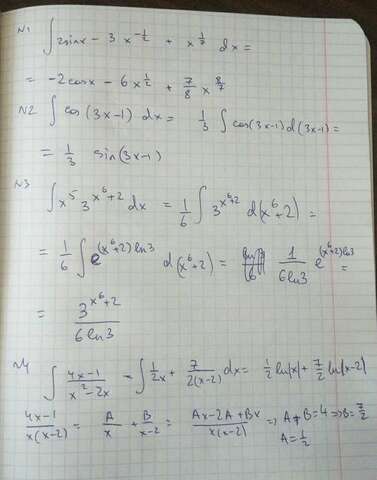 N1 ∫ 2sinx - 3x^{-1/2} + x^{1/7} dx =
= -2cosx - 6x^{1/2} + 7/8 x^{8/7}
N2 ∫ cos(3x-1) dx = 1/3 ∫ cos(3x-1) d(3x-1) =
= 1/3 sin(3x-1)
N3
∫ x^5 3^{x^6+2} dx = 1/6 ∫ 3^{x^6+2} d(x^6+2) =
= 1/6 ∫ e^{(x^6+2)ln3} d(x^6+2) = 1/(6ln3) e^{(x^6+2)ln3} =
= 3^{x^6+2}/(6ln3)
N4
∫ (4x-1)/(x^2-2x) = ∫ 1/2x + 7/(2(x-2)) dx = 1/2 ln|x| + 7/2 ln|x-2)
(4x-1)/(x(x-2)) = A/x + B/(x-2) = (Ax-2A+Bx)/(x(x-2)) ⇒ A+B=4 ⇒ B=7/2
A=1/2